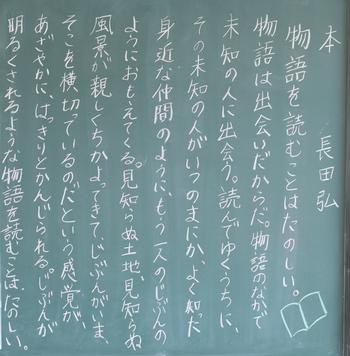 本　長田弘
物語を読むことはたのしい。
物語は出会いだからだ。物語のなかで
未知の人に出会う。読んでゆくうちに、
その未知の人がいつのまにか、よく知った
身近な仲間のように、もう一人のじぶんの
ようにおもえてくる。見知らぬ土地、見知らぬ
風景が親しくちかよってきて、じぶんがいま、
そこを横切っているのだという感覚が、
あざやかに、はっきりとかんじられる。じぶんが
明るくされるような物語を読むことは、たのしい。